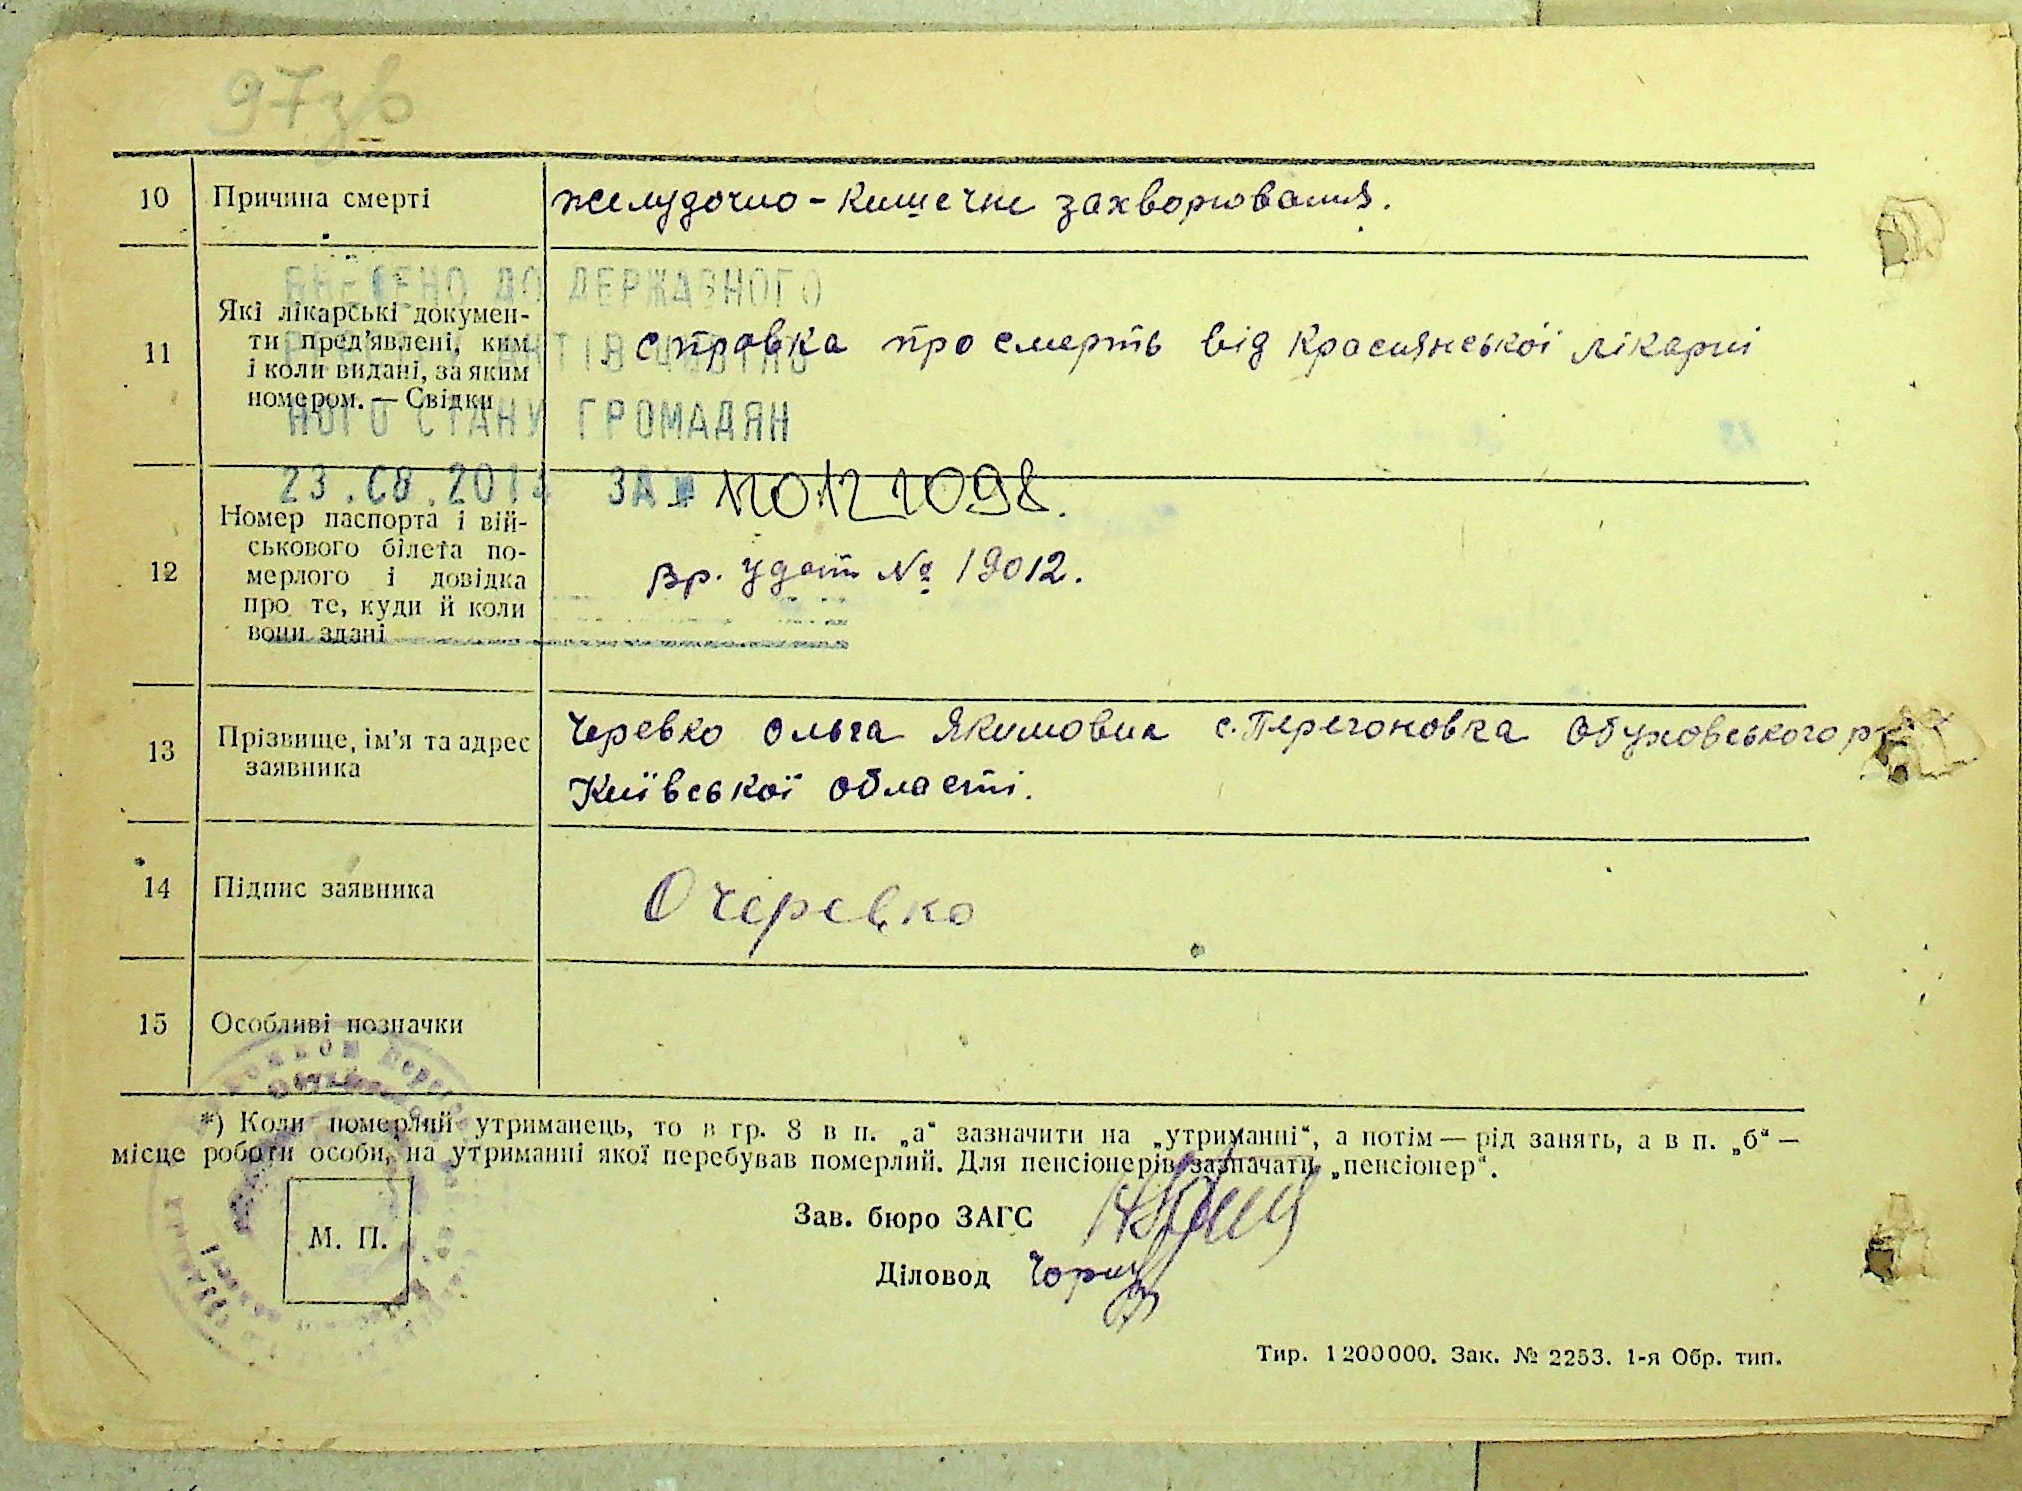 97зв
10 Причина смерті желудочно-кишечне захворювання.
ВНЕСЕНО ДО ДЕРЖАВНОГО
НОГО СТАНУ ГРОМАДЯН
23.08.201 ЗА № 11012 1098.
11 Які лікарські докумен-
ти пред'явлені, ким
і коли видані, за яким
номером. — Свідки
справка про смерть від Краснянської лікарні
12 Номер паспорта і вій-
ськового білета по-
мерлого і довідка
про те, куди й коли
вони здані
вр. удост № 19012.
13 Прізвище, ім'я та адрес
заявника
Черевко Ольга Якимовна с. Перегоновка Обуховського р
Київської області.
14 Підпис заявника О Черевко
15 Особливі позначки
*) Коли померлий утриманець, то в гр. 8 в п. „а“ зазначити на „утриманні“, а потім — рід занять, а в п. „б“ —
місце роботи особи, на утриманні якої перебував померлий. Для пенсіонерів зазначати „пенсіонер“.
М. П.
Зав. бюро ЗАГС
Діловод
Тир. 1200000. Зак. № 2253. 1-я Обр. тип.